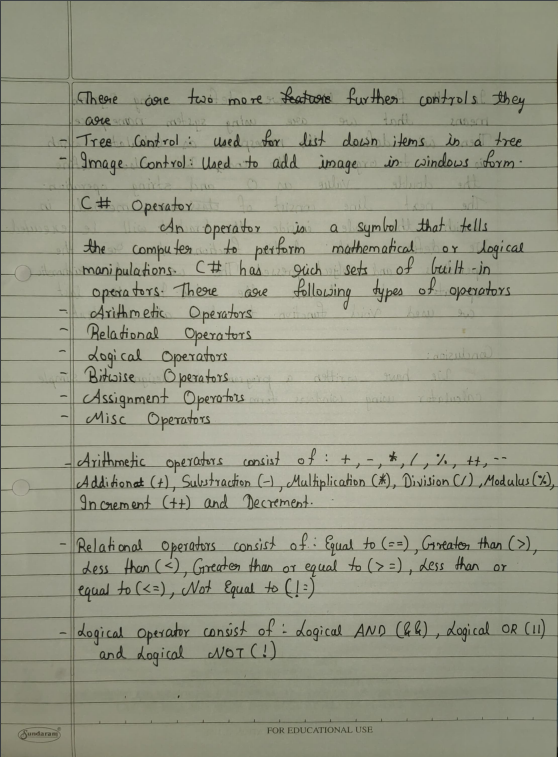 There are two more feature further controls they
are
- Tree Control : used for list down items in a tree
- Image Control : Used to add image in windows form.
C# Operator
An operator is a symbol that tells
the computer to perform mathematical or logical
manipulations. C# has rich sets of built-in
operators. There are following types of operators
- Arithmetic Operators
- Relational Operators
- Logical Operators
- Bitwise Operators
- Assignment Operators
- Misc Operators
- Arithmetic operators consist of : +, -, *, /, %, ++, --
Additional (+), Substraction (-), Multiplication (*), Division (/), Modulus (%),
Increment (++) and Decrement.
- Relational Operators consist of : Equal to (==), Greater than (>),
Less than (<), Greater than or equal to (>=), Less than or
equal to (<=), Not Equal to (!=)
- Logical Operator consist of :- Logical AND (&&), Logical OR (||)
and Logical NOT (!)
Sundaram
FOR EDUCATIONAL USE